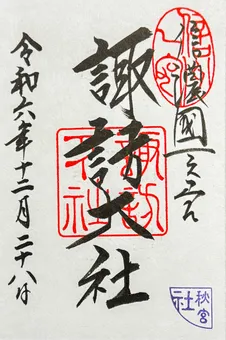 信濃國一之宮
諏訪大社
令和六年十二月二十八日
諏訪大社
秋宮社